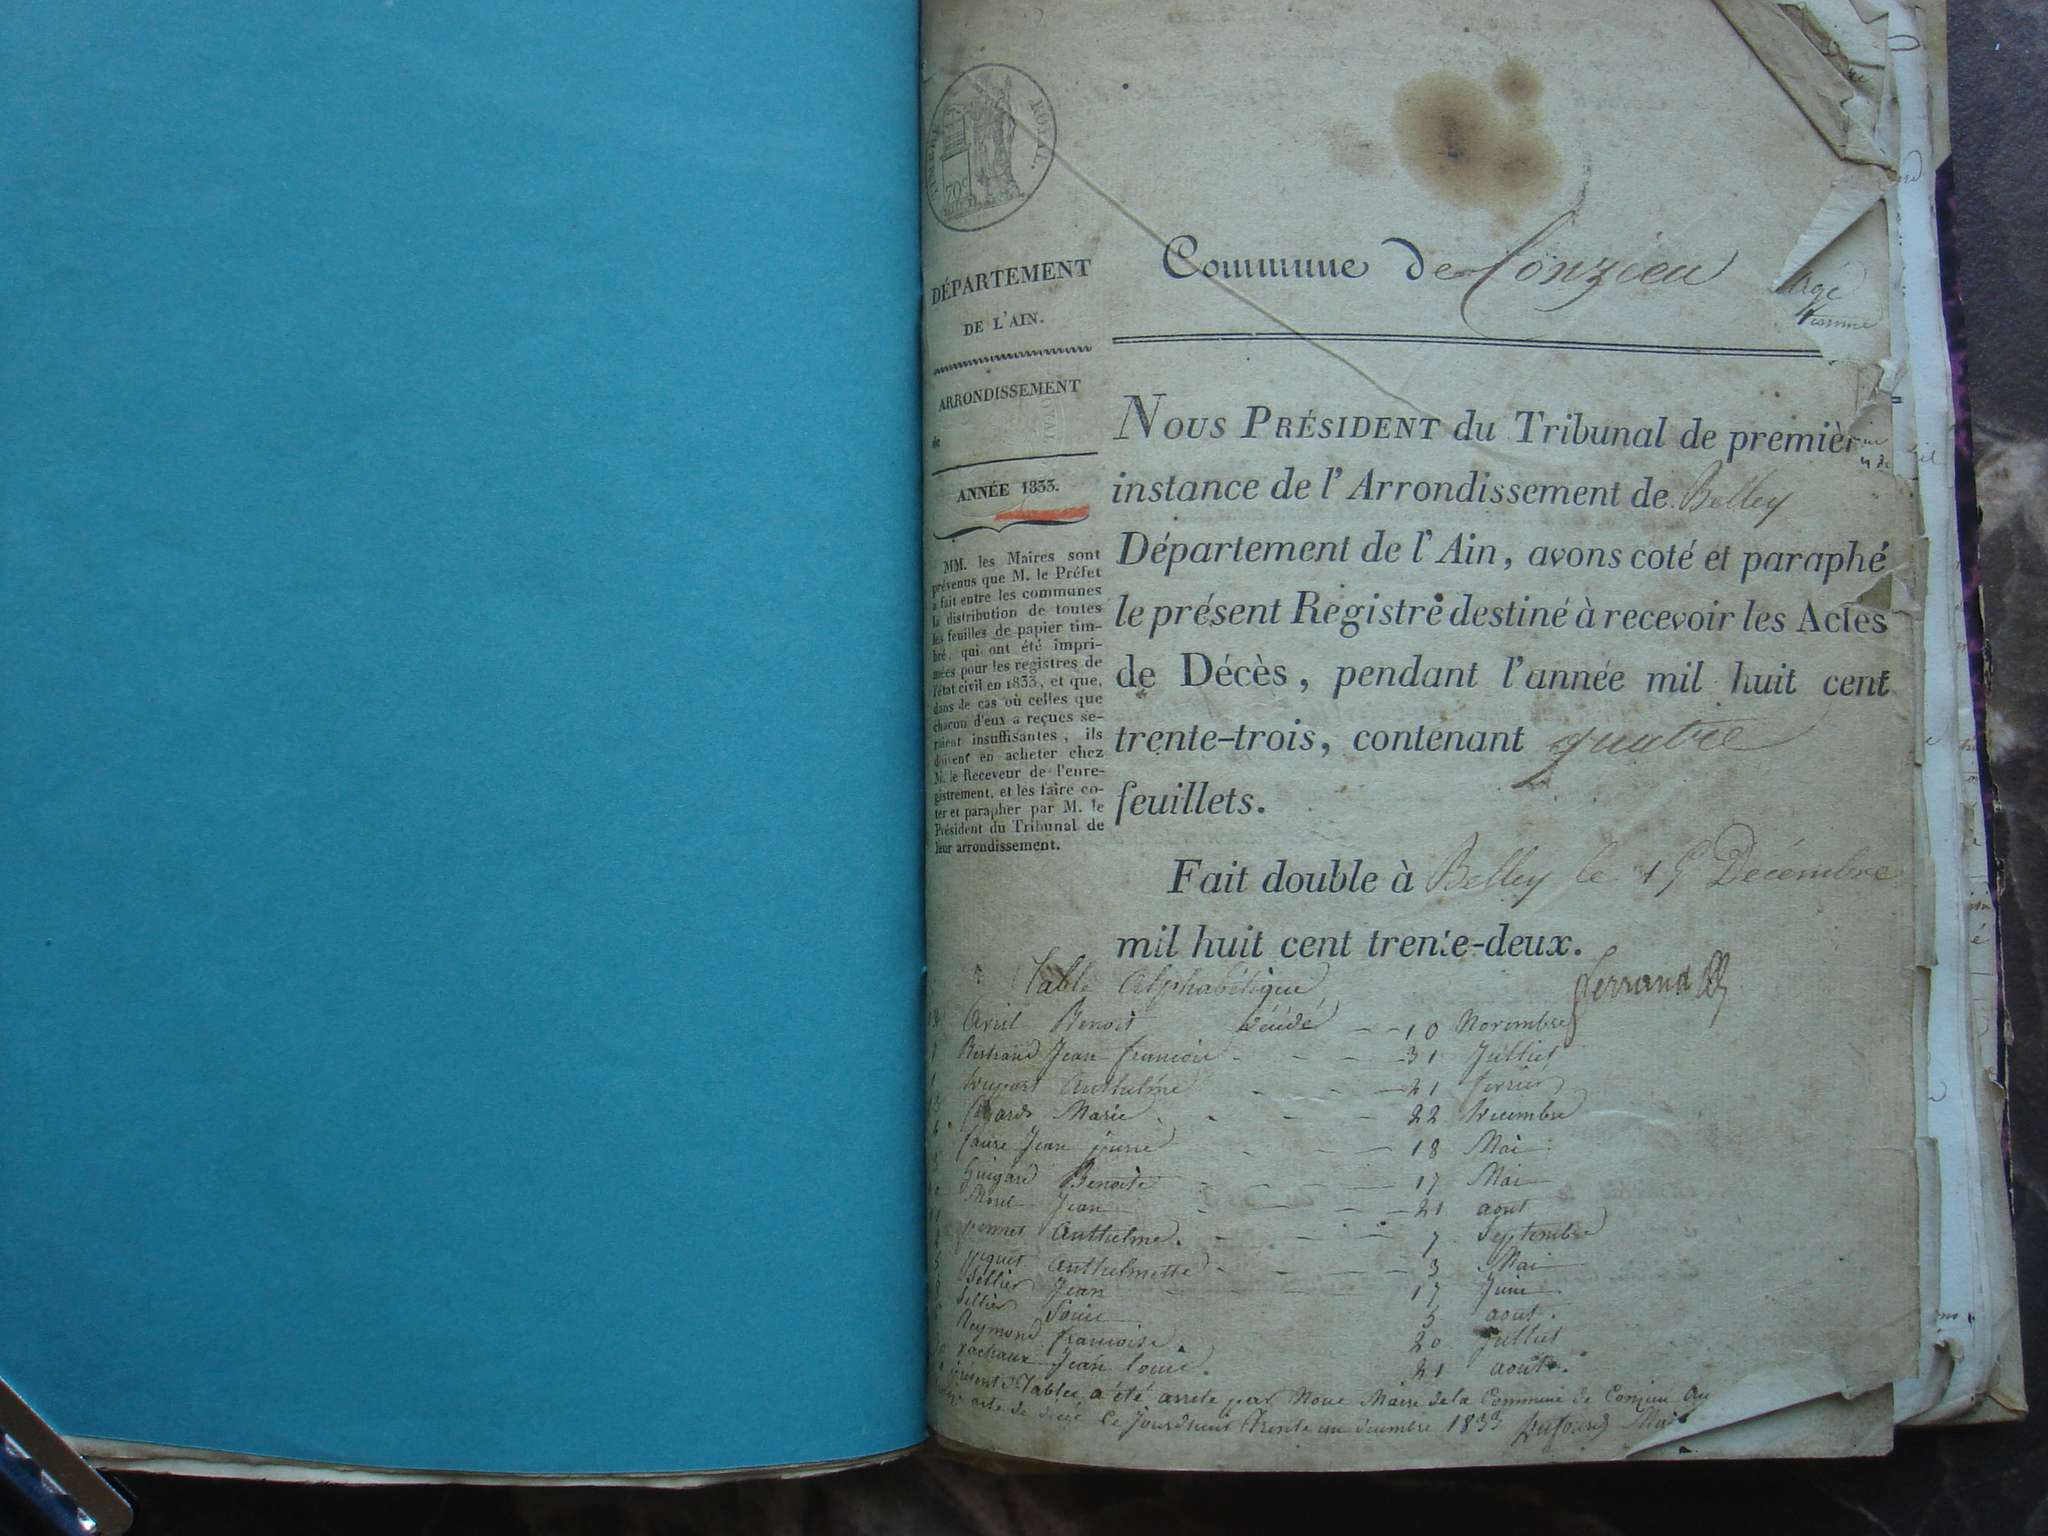 TIMBRE ROYAL.
70c
DÉPARTEMENT
DE L'AIN.
ARRONDISSEMENT
de
ANNÉE 1833.
MM. les Maires sont
prévenus que M. le Préfet
a fait entre les communes
la distribution de toutes
les feuilles de papier tim-
bré, qui ont été impri-
mées pour les registres de
l'état civil en 1833, et que,
dans le cas où celles que
chacun d'eux a reçues se-
raient insuffisantes, ils
doivent en acheter chez
M. le Receveur de l'enre-
gistrement, et les faire co-
ter et parapher par M. le
Président du Tribunal de
leur arrondissement.
Commune de Conzieu
Agé
femme
NOUS PRÉSIDENT du Tribunal de premièr
instance de l'Arrondissement de Belley
Département de l'Ain, avons coté et paraphé
le présent Registre destiné à recevoir les Actes
de Décès, pendant l'année mil huit cent
trente-trois, contenant quatre
feuillets.
Fait double à Belley le 15 Décembre
mil huit cent trente-deux.
Table Alphabétique
Avril Benoit décédé 10 Novembre
Bertrand Jean francois 31 Julliet
Duport Anthelme 21 fevrier
Marie 22 Decembre
faure Jean pierre 18 Mai
Guigard Benoite 17 Mai
Morel Jean 21 aout
Anthelme 7 Septembre
Anthelmette 3 Mai
Sellier Jean 17 Juin
Sellier Louis 5 aout
Reymond francoise 20 Julliet
Jean Louis 21 aout
présente Table a été arrete par Nous Maire de la Commune de Conzieu au
acte de décé le Jourdhuit Trente un decembre 1833